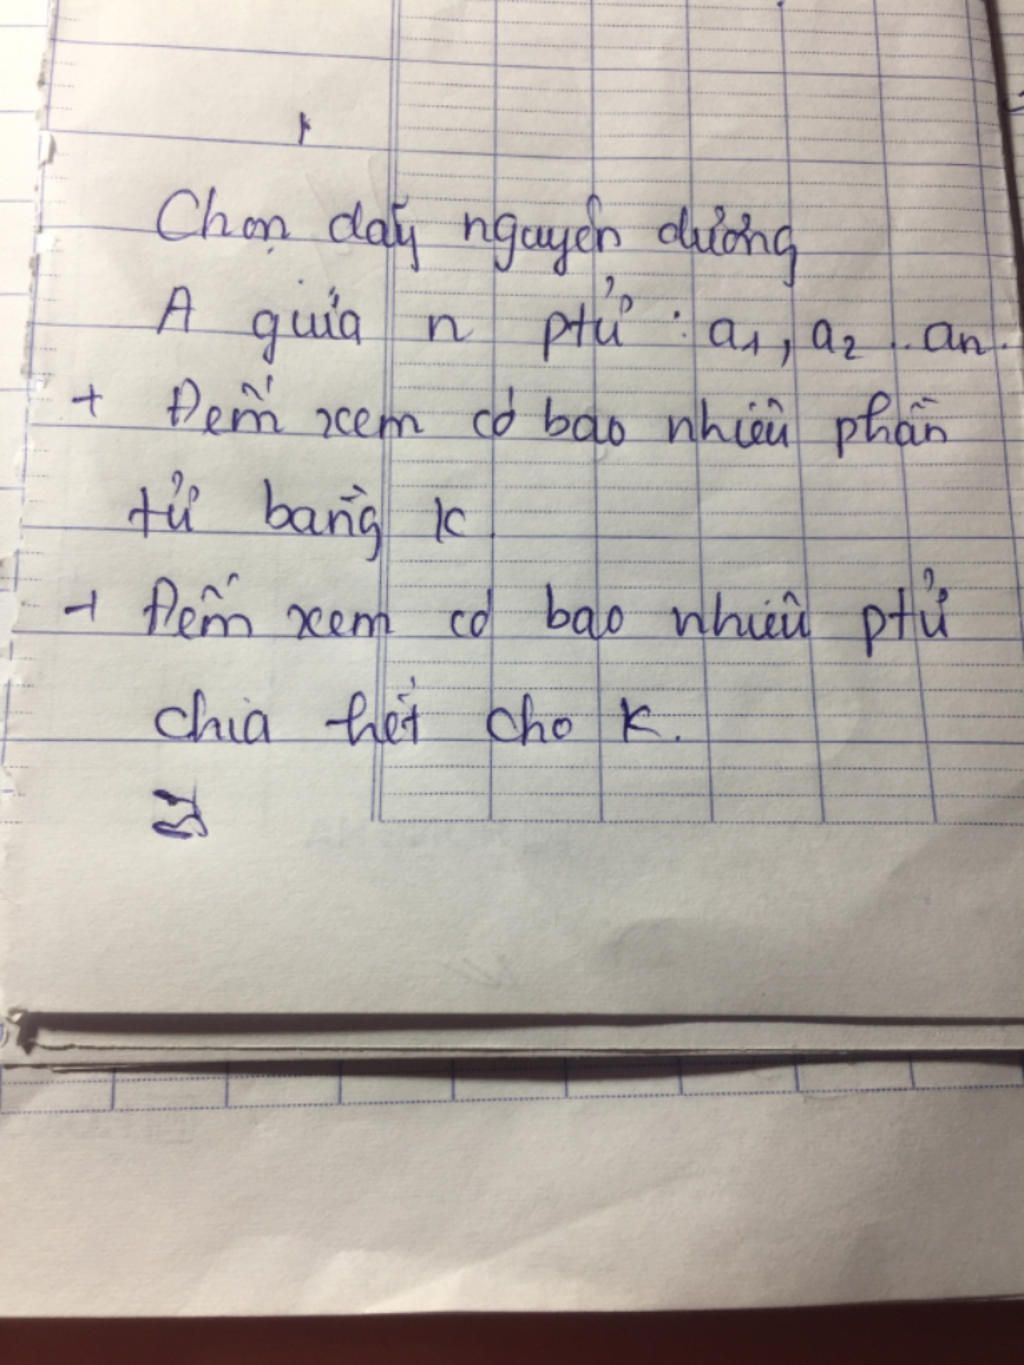 Chọn dãy nguyên dương
A giửa n ptử : a1, a2 .. an.
+ Đếm xem có bao nhiêu phần
tử bằng k
+ Đếm xem có bao nhiêu ptử
chia hết cho K.